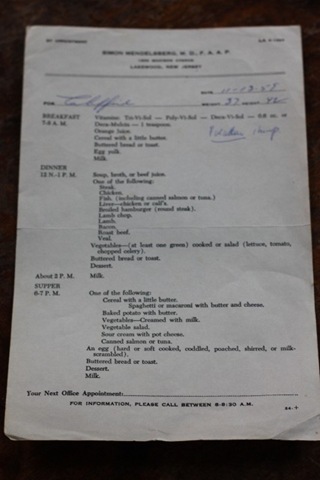 BY APPOINTMENT
SIMON MENDELSBERG, M. D., F. A. A. P.
LAKEWOOD, NEW JERSEY
DATE 11-13-58
FOR Clifford WEIGHT 37 HEIGHT 42
BREAKFAST Vitamins: Tri-Vi-Sol — Poly-Vi-Sol — Deca-Vi-Sol — 0.6 cc. or
7-8 A. M. Deca-Mulcin — 1 teaspoon.
Orange juice.
Cereal with a little butter.
Buttered bread or toast.
Egg yolk.
Milk.
DINNER
12 N.-1 P. M. Soup, broth, or beef juice.
One of the following:
Steak.
Chicken.
Fish, (including canned salmon or tuna.)
Liver—chicken or calf's.
Broiled hamburger (round steak).
Lamb chop.
Lamb.
Bacon.
Roast beef.
Veal.
Vegetables—(at least one green) cooked or salad (lettuce, tomato,
chopped celery).
Buttered bread or toast.
Dessert.
About 3 P. M. Milk.
SUPPER
6-7 P. M. One of the following:
Cereal with a little butter.
Spaghetti or macaroni with butter and cheese.
Baked potato with butter.
Vegetables—Creamed with milk.
Vegetable salad.
Sour cream with pot cheese.
Canned salmon or tuna.
An egg (hard or soft cooked, coddled, poached, shirred, or milk-
scrambled).
Buttered bread or toast.
Dessert.
Milk.
Your Next Office Appointment:
FOR INFORMATION, PLEASE CALL BETWEEN 8-8:30 A.M.